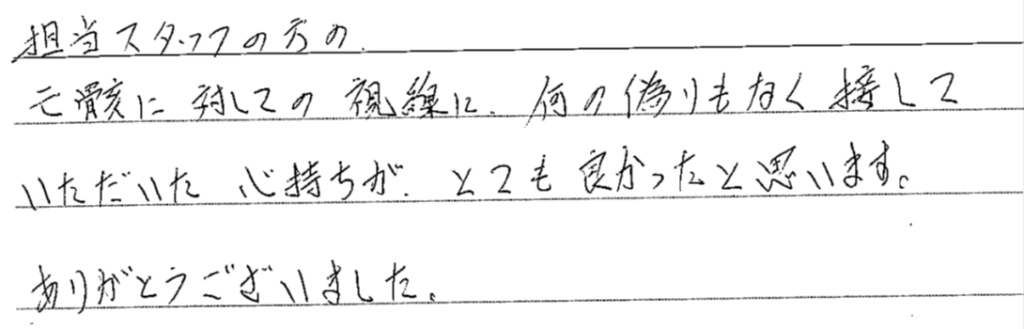 担当スタッフの方の、
亡骸に対しての視線に、何の偽りもなく接して
いただいた心持ちが、とても良かったと思います。
ありがとうございました。